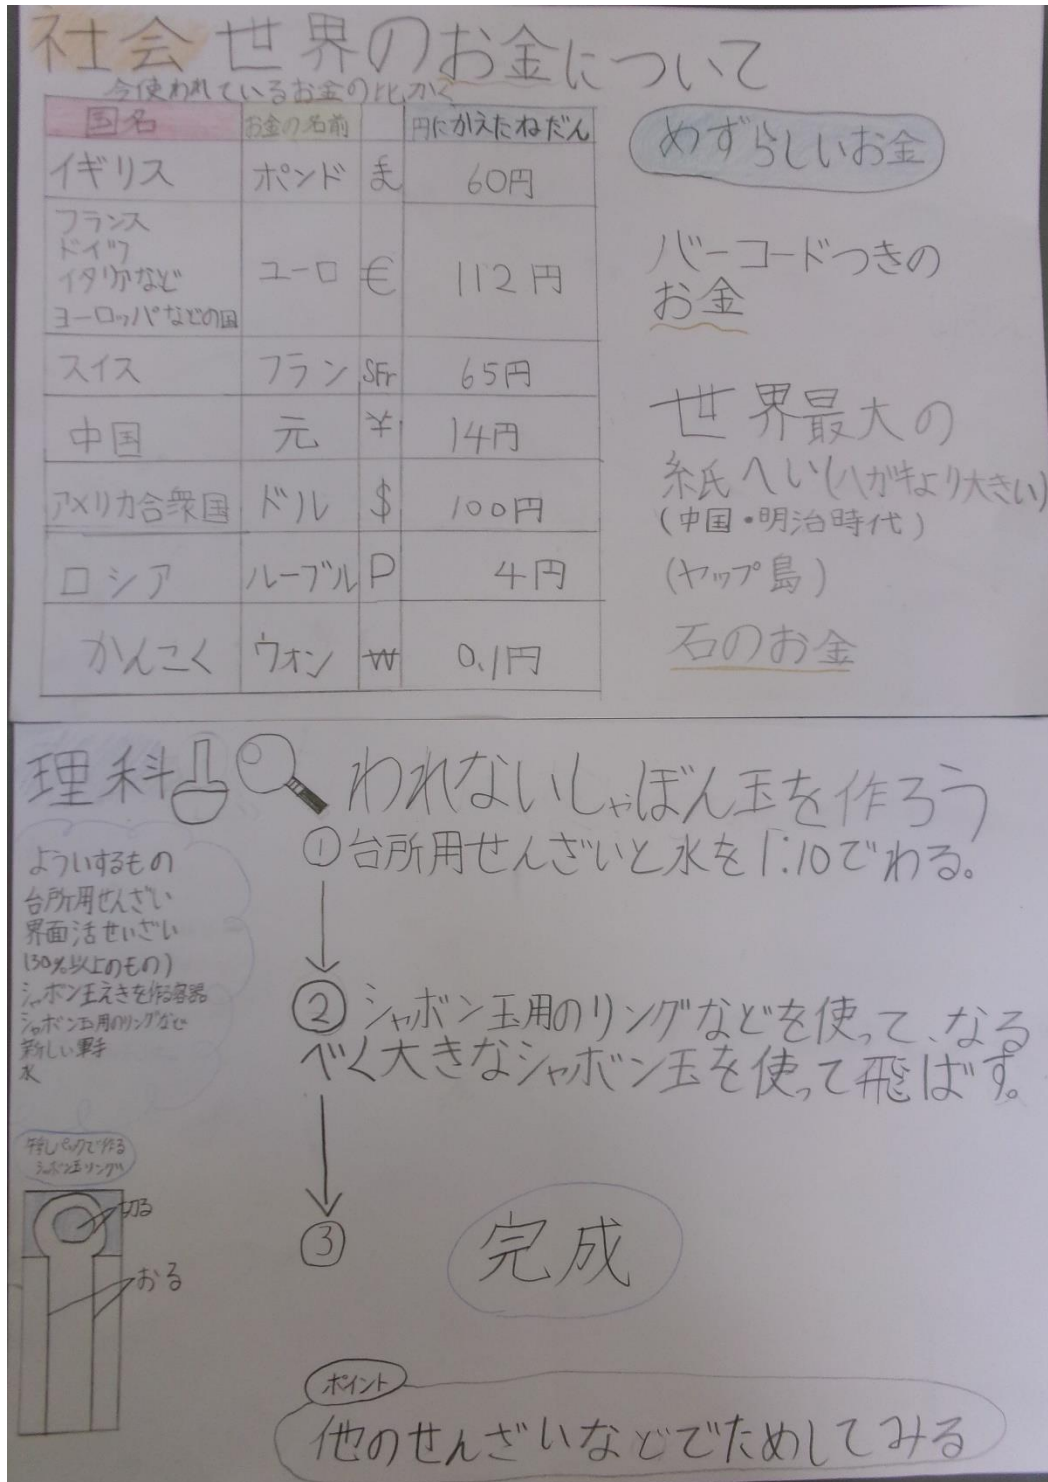 社会 世界のお金について
今使われているお金の比かく
国名 お金の名前 円にかえたねだん
イギリス ポンド £ 60円
フランス
ドイツ
イタリアなど
ヨーロッパなどの国
ユーロ € 112円
スイス フラン SFr 65円
中国 元 ¥ 14円
アメリカ合衆国 ドル $ 100円
ロシア ルーブル P 4円
かんこく ウォン ₩ 0.1円
めずらしいお金
バーコードつきの
お金
世界最大の
紙へい(ハガキより大きい)
(中国・明治時代)
(ヤップ島)
石のお金
理科 われないしゃぼん玉を作ろう
よういするもの
台所用せんざい
界面活せいざい
(30%以上のもの)
シャボン玉えきを作る容器
シャボン玉用のリングなど
新しい軍手
水
牛乳パックで作る
シャボン玉リング
切る
おる
①台所用せんざいと水を1:10でわる。
②シャボン玉用のリングなどを使って、なる
べく大きなシャボン玉を使って飛ばす。
③ 完成
ポイント
他のせんざいなどでためしてみる